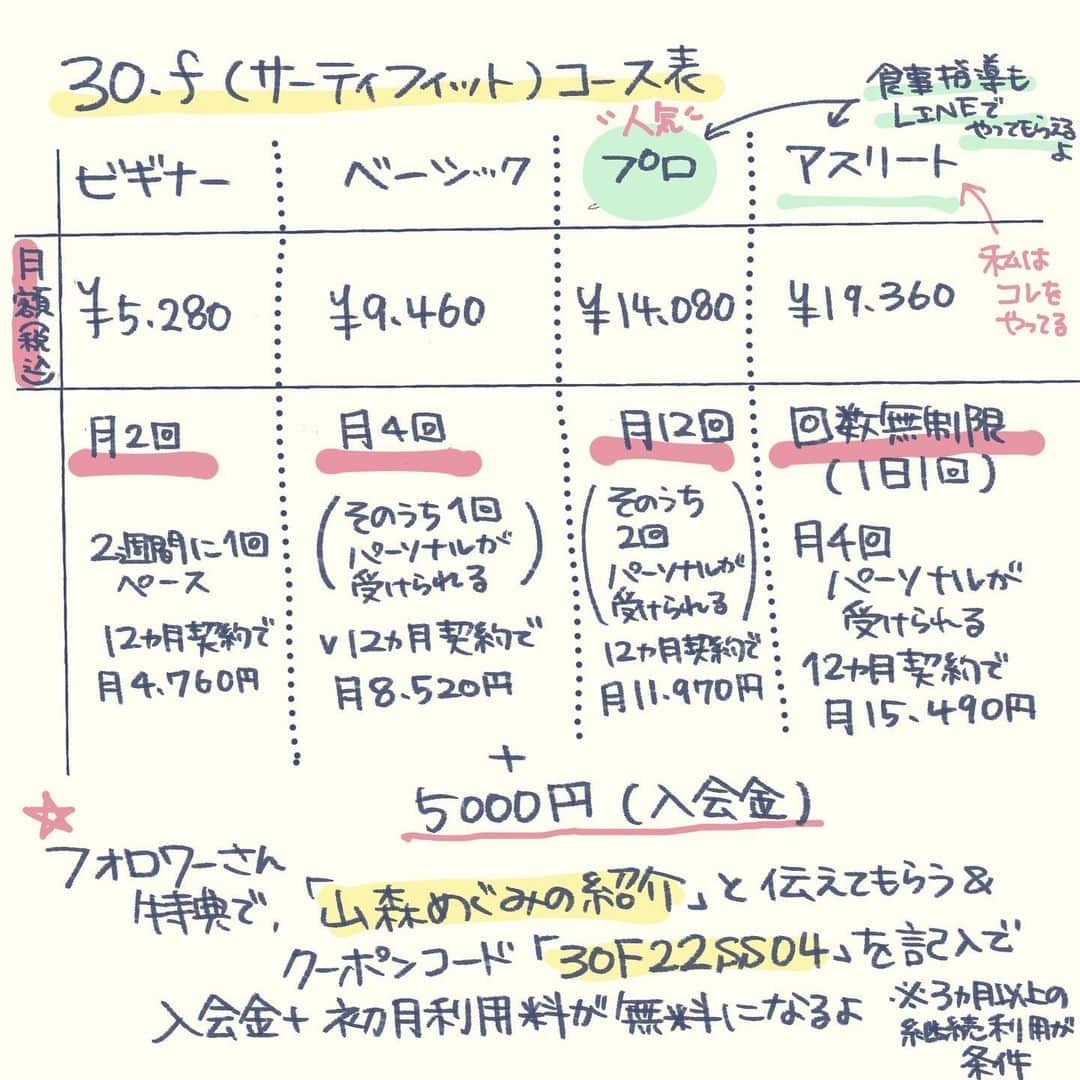 30.f(サーティフィット)コース表
食事指導も
LINEで
やってもらえる
よ
"人気"
ビギナー
ベーシック
プロ
アスリート
私は
コレを
やってる
月額(税込)
¥5.280
¥9.460
¥14.080
¥19.360
月2回
2週間に1回
ペース
12ヵ月契約で
月4.760円
月4回
(そのうち1回
パーソナルが
受けられる)
v12ヵ月契約で
月8.520円
月12回
(そのうち
2回
パーソナルが
受けられる)
12ヵ月契約で
月11.970円
回数無制限
(1日1回)
月4回
パーソナルが
受けられる
12ヵ月契約で
月15.490円
+
5000円(入会金)
☆
フォロワーさん
特典で,「山森めぐみの紹介」と伝えてもらう&
クーポンコード「30F22SS04」を記入で
入会金+初月利用料が無料になるよ
.※3ヵ月以上の
継続利用が
条件